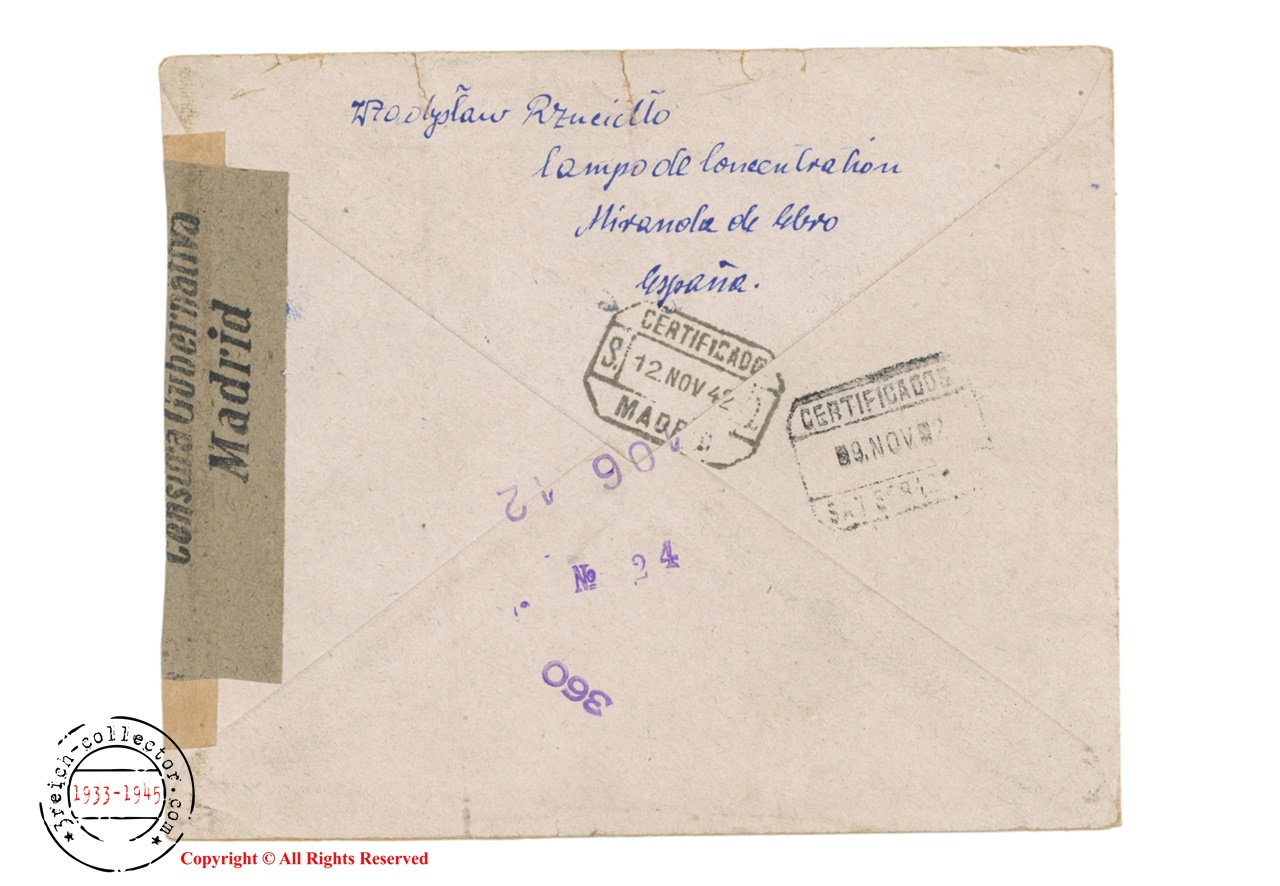 Władysław Rzuciłło
Campo de Concentration
Miranda de Ebro
España.
Censura Gubernativa
Madrid
CERTIFICADO
12.NOV 42
MADRID
CERTIFICADO
9.NOV
12
906
№ 24
360
3reich-collector.com
1933-1945
Copyright © All Rights Reserved